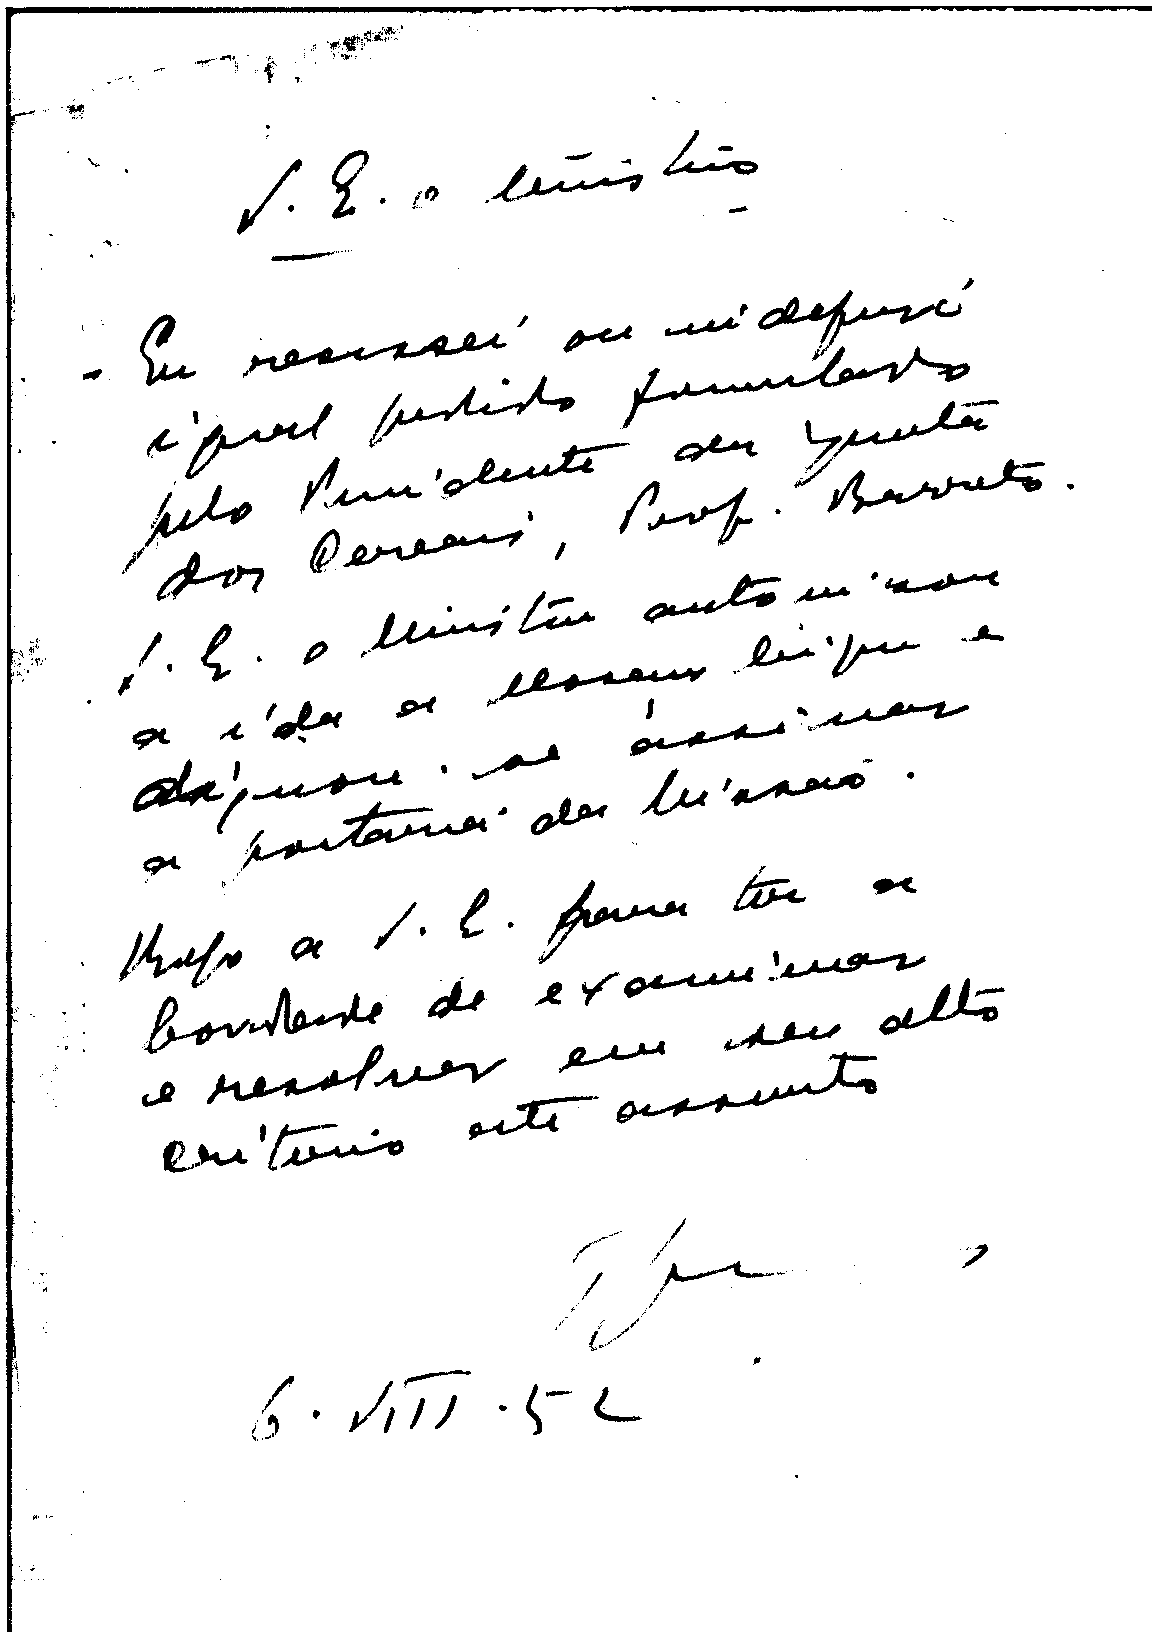 S. E. o Ministro
- Eu recusei ou indeferi
igual pedido formulado
pelo Presidente da Junta
dos Cereais, Prof. Barreto.
S. E. o Ministro autorizou
a ida a
dignou-se assinar
a portaria da Missão.
Peço a S. E. para ter a
bondade de examinar
e resolver em seu alto
critério este assunto
6.VIII.52